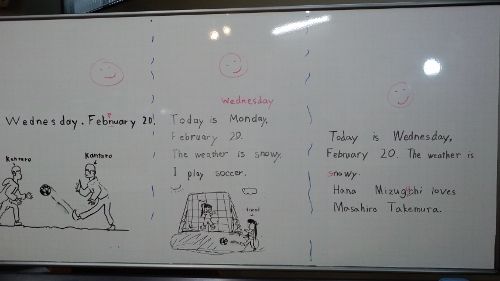 Wednesday. February 20.
Kantaro
Kantaro
Wednesday
Today is Monday,
February 20.
The weather is snowy.
I play soccer.
Today is Wednesday,
February 20. The weather is
snowy.
Hana Mizuguchi loves
Masahiro Takemura.